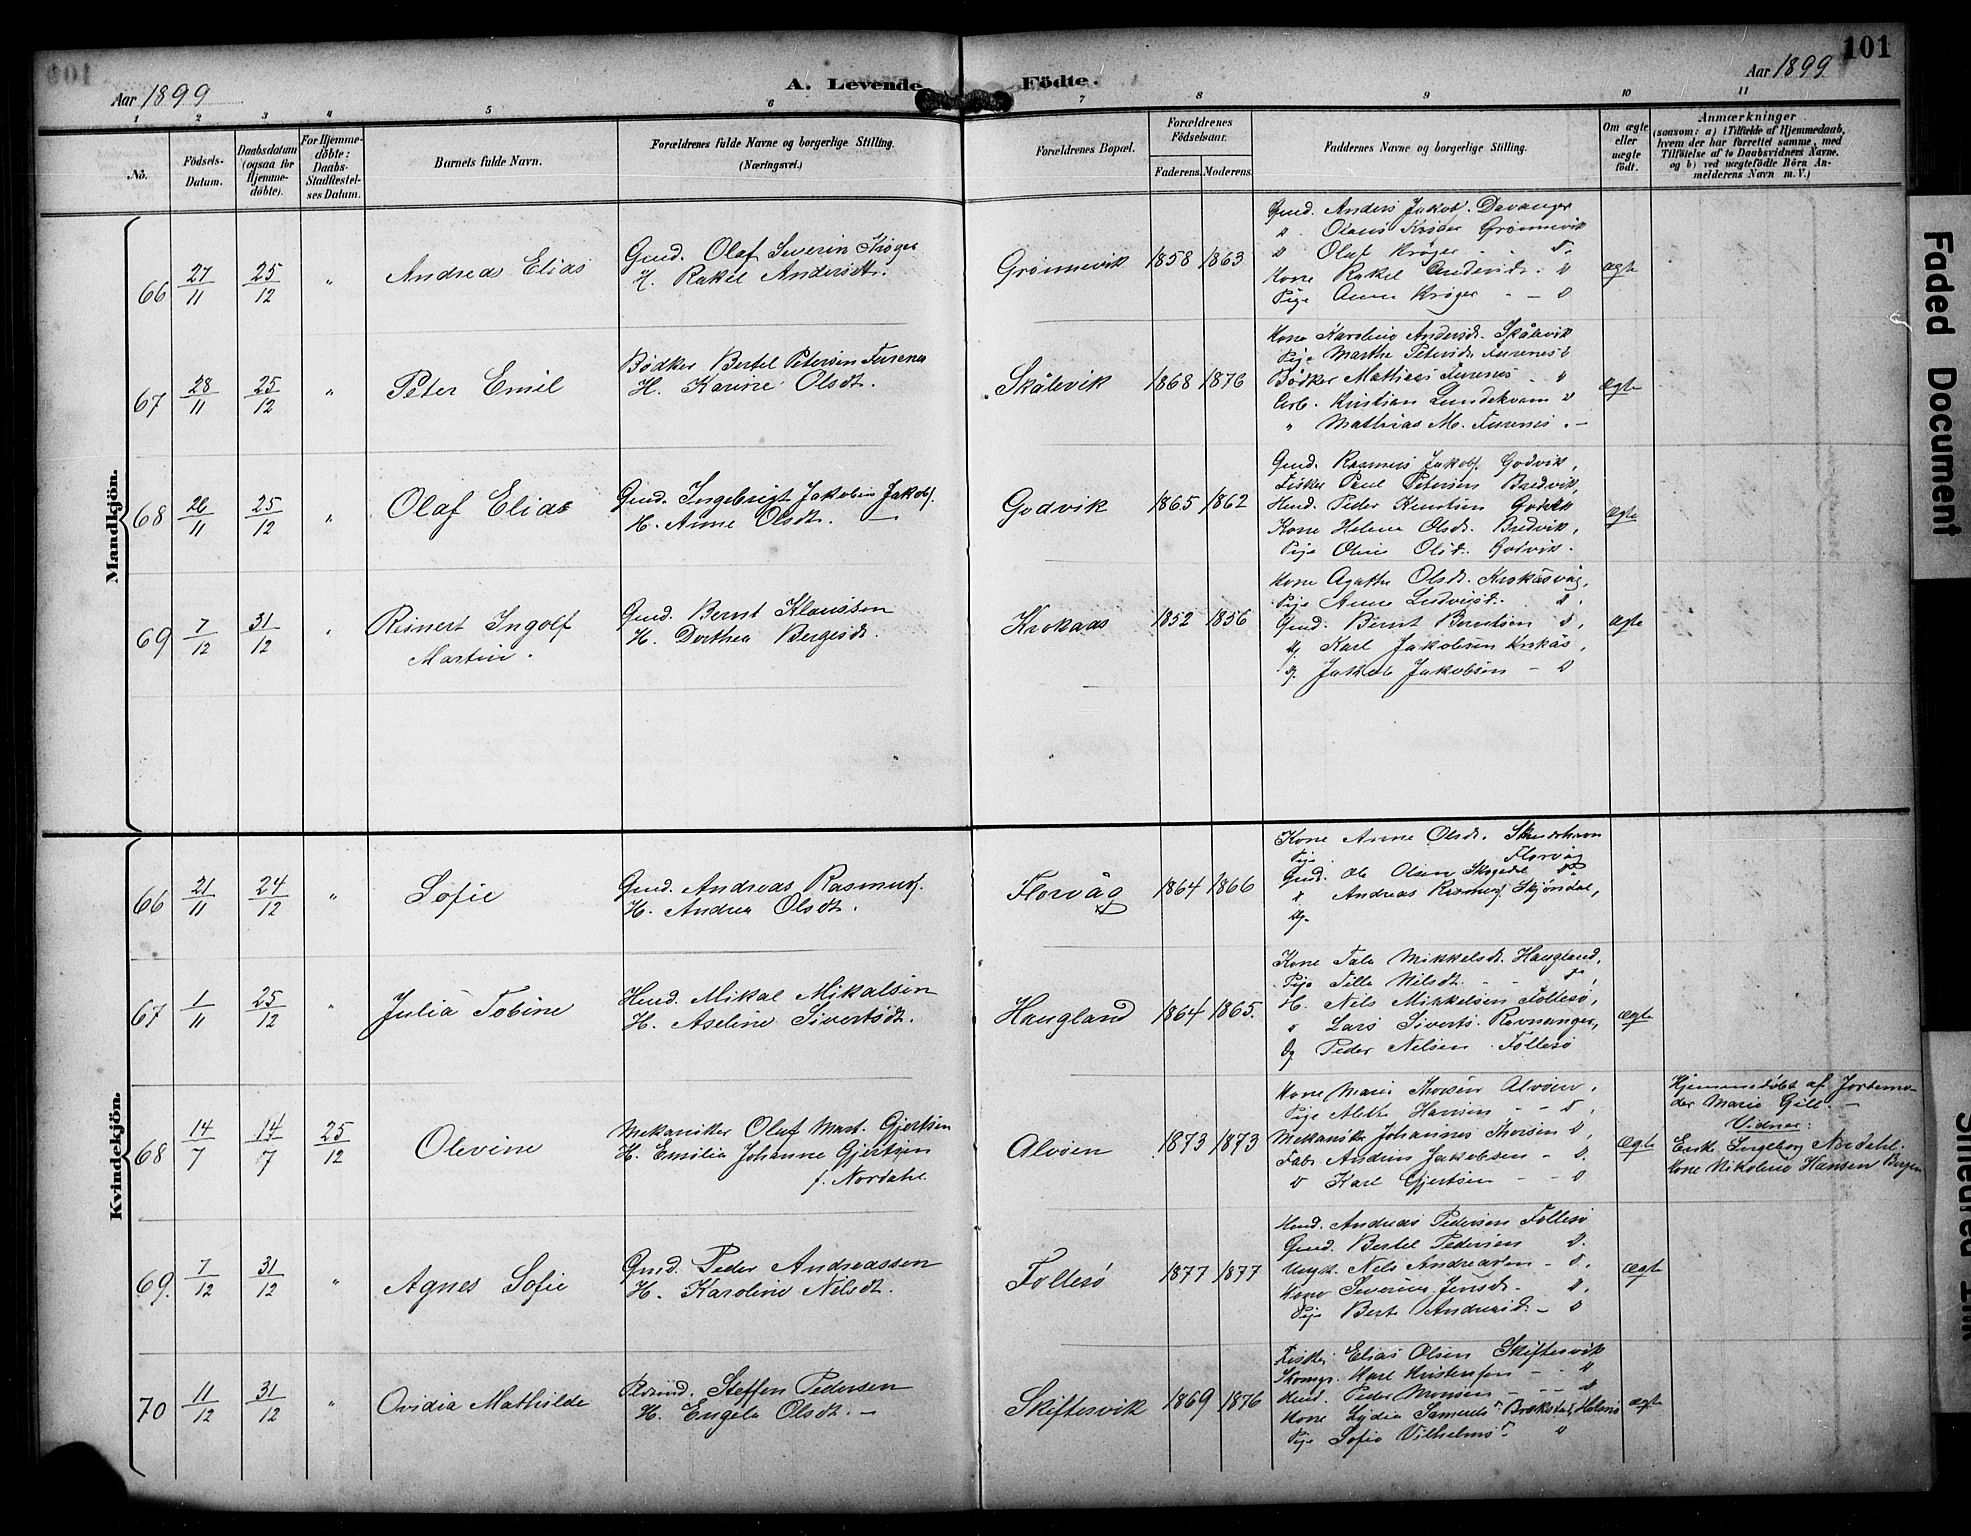 101
Aar 1899
A. Levende Födte.
Aar 1899
1 2 3 4 5 6 7 8 9 10 11
No.
Födsels-Datum.
Daabsdatum (ogsaa for Hjemmedöbte).
For Hjemmedöbte: Daabs-Stadfæstelses Datum.
Barnets fulde Navn.
Forældrenes fulde Navne og borgerlige Stilling.
(Næringsvei.)
Forældrenes Bopæl.
Forældrenes Födselsaar.
Faderens. Moderens.
Faddernes Navne og borgerlige Stilling.
Om ægte eller uægte födt.
Anmærkninger
(saasom: a) i Tilfælde af Hjemmedaab,
hvem der har forrettet samme, med
Tilföielse af to Daabsvidners Navne.
og b) ved uægtefödte Börn An-
melderens Navn m. V.)
Mandkjön.
66 27/11 25/12 " Andrea Elias
Gmd. Olaf Severin Krøger
H. Rakel Andersdt.
Grønnevik 1858 1863
Gmd. Anders Jakob. Davanger
" Olaus Krøger Grønnevik
" Olaf Krøger - D.
Kone Rakel Andersdt. D
Pige Anna Krøger - - D
ægte
67 28/11 25/12 " Peter Emil
Bødker Bertel Petersen Furenes
H. Karine Olsdt.
Skålevik 1868 1876
Kone Karoline Andersdt. Skålevik
Pige Marthe Petersdt. Furenes
Bødker Mathias Furenes - "
Arb. Kristian Lundekvam D
" Mathias M. Furenes . -
Ægte
68 26/11 25/12 " Olaf Elias
Gmd. Ingebrigt Jakobsen Jakobs.
H. Anne Olsdt. -
Godvik 1865 1862
Gmd. Rasmus Jakobs. Godvik,
Fisker Paul Petersen Bredvik,
Hmd. Peder Knutsen Godvik
Kone Helena Olsdt. Bredvik,
Pige Oline Olsdt. Godvik.
ægte
69 7/12 31/12 " Reinert Ingolf
Martin.
Gmd. Bernt Klaussen
H. Dorthea Bergesdt.
Krokaas 1852 1856
Kone Agathe Olsdt. Krokåsvåg,
Pige Anna Ludvigsdt. D.
Gmd. Bernt Berntsen D,
Ug. Karl Jakobsen Krokås,
Ug. Jakob Jakobsen - D
ægte
Kvindekjön.
66 21/11 24/12 " Sofie
Gmd. Andreas Rasmuss.
H. Andrea Olsdt.
Florvåg 1864 1866
Kone Anne Olsdt.
Pige Florvåg
Gmd. Ole Olsen
" Andreas Rasmuss. Skjøndal,
Ug.
67 1/11 25/12 " Julia Tobine
Hmd. Mikal Mikalsen
H. Aseline Sivertsdt.
Haugland 1864 1865.
Kone Tale Mikkelsdt. Haugland,
Pige Tille Nilsdt. - - D
H. Nels Mikkelsen Follesø,
" Lars Siverts. Ravnanger,
Ug Peder Nelsen Follesø
ægte
68 14/7 14/7 25/12 Olevine
Mekaniker Olaf Mart. Gjertsen
H. Emilia Johanne Gjertsen
f. Nordahl.
Alvøen 1873 1873
Kone Maria Thorsen Alvøen,
Pige Alette Hansen - - D.
Mekaniker Johannes Thorsen D,
Fabr. Andreas Jakobsen - D.
D Karl Gjertsen - - D
Ægte
Hjemmedøbt af Jordemo-
der Marie Gill. -
Vidner:
Enk. Ingeborg Nordahl.
Kone Nikoline Hansen Bergen
69. 7/12 31/12 " Agnes Sofie
Gmd. Peder Andreassen
H. Karoline Nilsdt.
Follesø 1877 1877
Hmd. Andreas Pedersen Follesø
Gmd. Bertel Pedersen D.
Ungk. Nels Andreassen - D.
Kone Severine Jensdt. - D.
Pige Berte Andreasd. - D
Ægte
70 11/12 31/12 " Ovidia Mathilde
Steffen Pedersen
H. Engela Olsdt. -
Skiftesvik 1869 1876
Fisker Elias Olsen Skiftesvik
Skomgr. Karl Kristensen - - "
Hmd. Peder Monsen - - - D
Kone Lydia Brakstad, Holsnø
Pige Sofie Vilhelmsdt. D
ægte
Faded Document
Smeared Ink